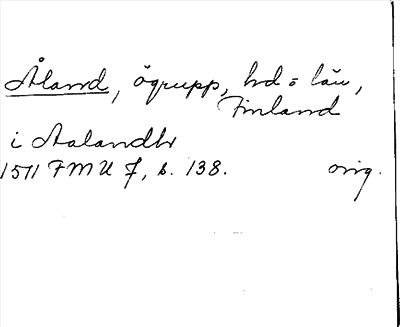 Åland, ögrupp, hd o län,
Finland
i Aalandhr
1511 FMU 7, s. 138. orig.